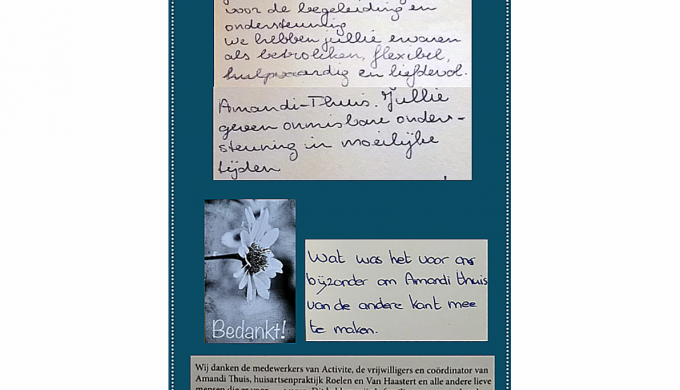 voor de begeleiding en
ondersteuning
We hebben jullie ervaren
als betrokken, flexibel,
hulpvaardig en liefdevol.
Amandi-Thuis. Jullie
geven onmisbare onder-
steuning in moeilijke
tijden
Bedankt!
Wat was het voor ons
bijzonder om Amandi thuis
van de andere kant mee
te maken.
Wij danken de medewerkers van Activite, de vrijwilligers en coördinator van
Amandi Thuis, huisartsenpraktijk Roelen en Van Haastert en alle andere lieve